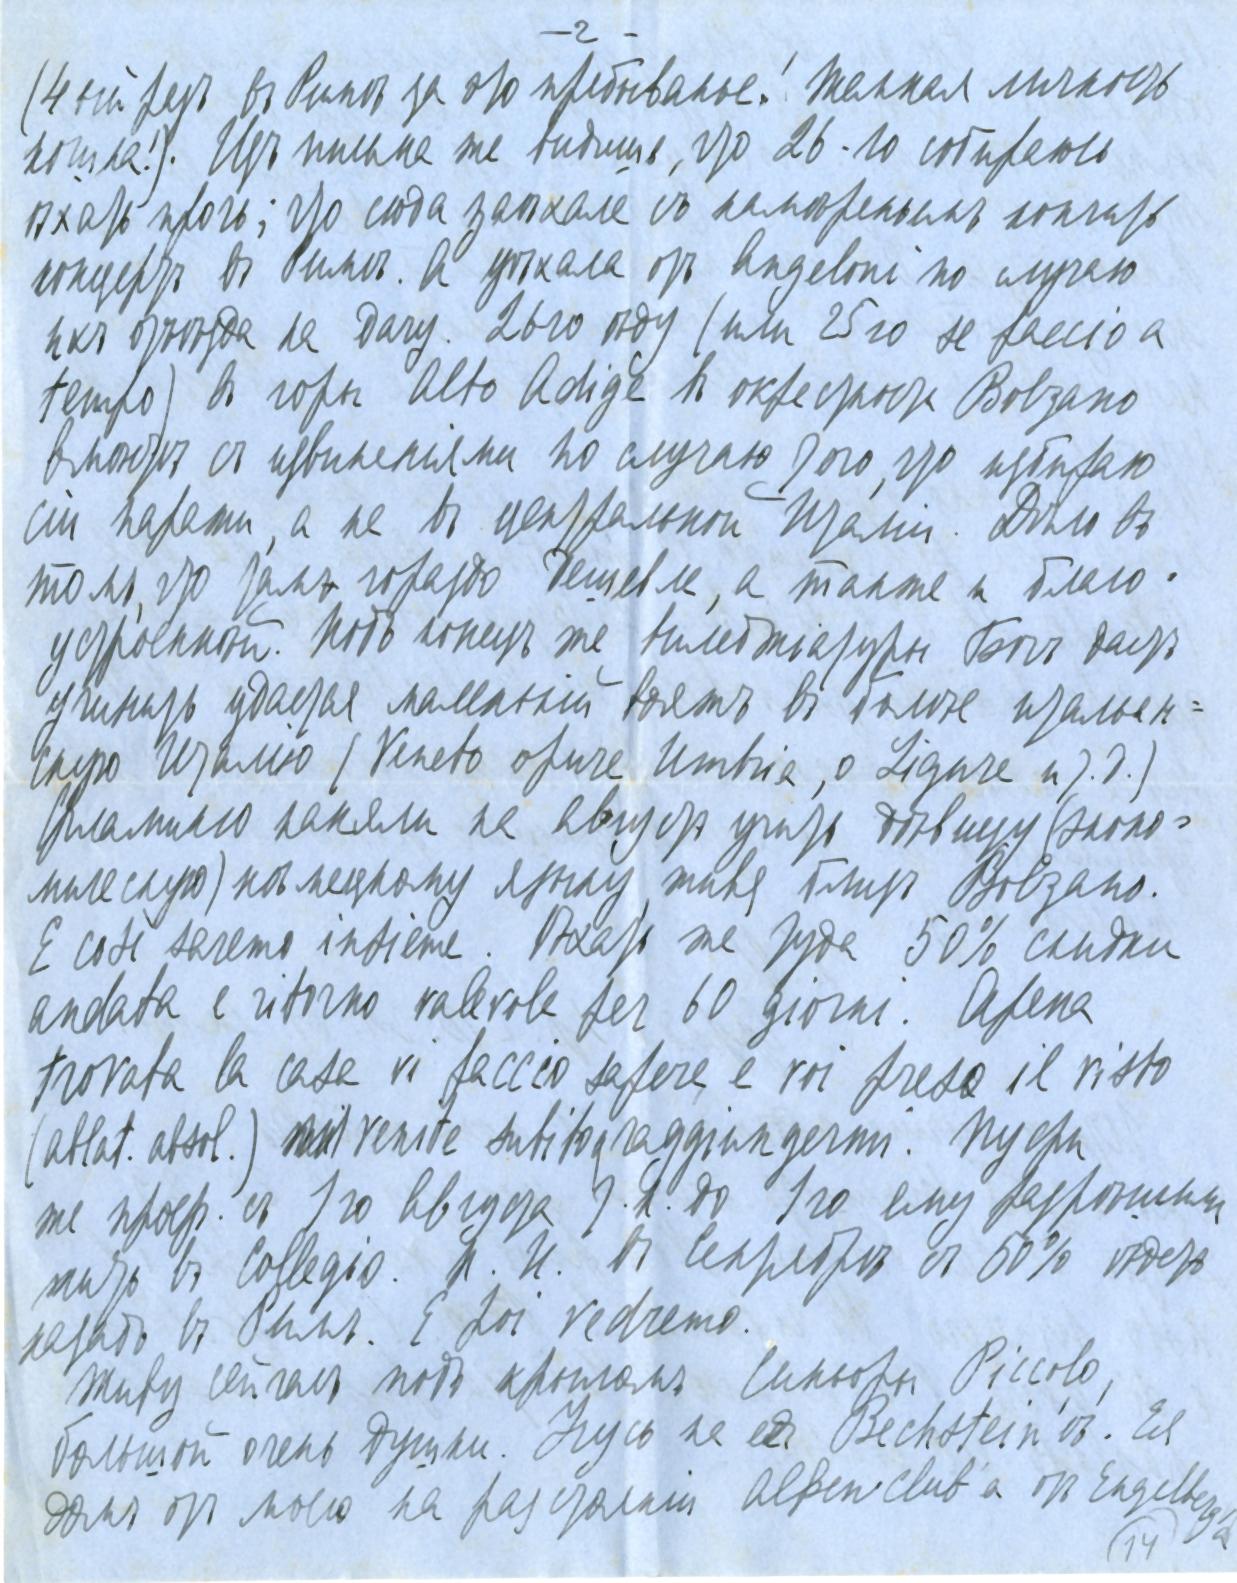 — 2 -
(4-ый разъ въ Римѣ за это пребыванье! Жалкая личность
кошка!). Изъ письма же видишь, что 26-го собираюсь
ѣхать прочь; что сюда заѣхала съ намѣреньемъ кончить
концертъ въ Римѣ. А уѣхала отъ Angeloni по случаю
ихъ отъѣзда на дачу. 26го ѣду (или 25го se faccio a
tempo) въ горы Alto Adige въ окрестности Bolzano
вмѣстѣ съ извиненіями по случаю того, что избираю
сіи парти, а не въ центральной Италіи. Дѣло въ
томъ, что тамъ гораздо дешевле, а также и благо-
устроенной. Подъ конецъ же вилледжіатуры Богъ дастъ
учинить удастся маленькій вояжъ въ болѣе итальян=
скую Италію (Veneto opure Umbria, o Ligure и т.д.)
Фламинго наняли на августъ учить дѣвицу (эконо=
мическую) нѣмецкому языку, живя близъ Bolzano.
E così saremo insieme. Ѣхать же туда 50% скидки
andata e ritorno valevole per 60 giorni. Apena
trovata la casa vi faccio sapere e voi preso il visto
(ablat. absol.) venite subito raggiungermi. Пусти
же прост. съ 1го Августа т.к. до 1го ему разрѣшили
жить въ Collegio. А. И. въ Сентябрѣ съ 50% ѣдетъ
назадъ въ Римъ. E poi vedremo.
Живу сейчасъ подъ крышами Синьоры Piccolo,
большой очень душки. Учусь на ея Bechstein'ѣ. Ея
домъ отъ моего на разстояніи Alpen-Club'а отъ Engelberg'а
14